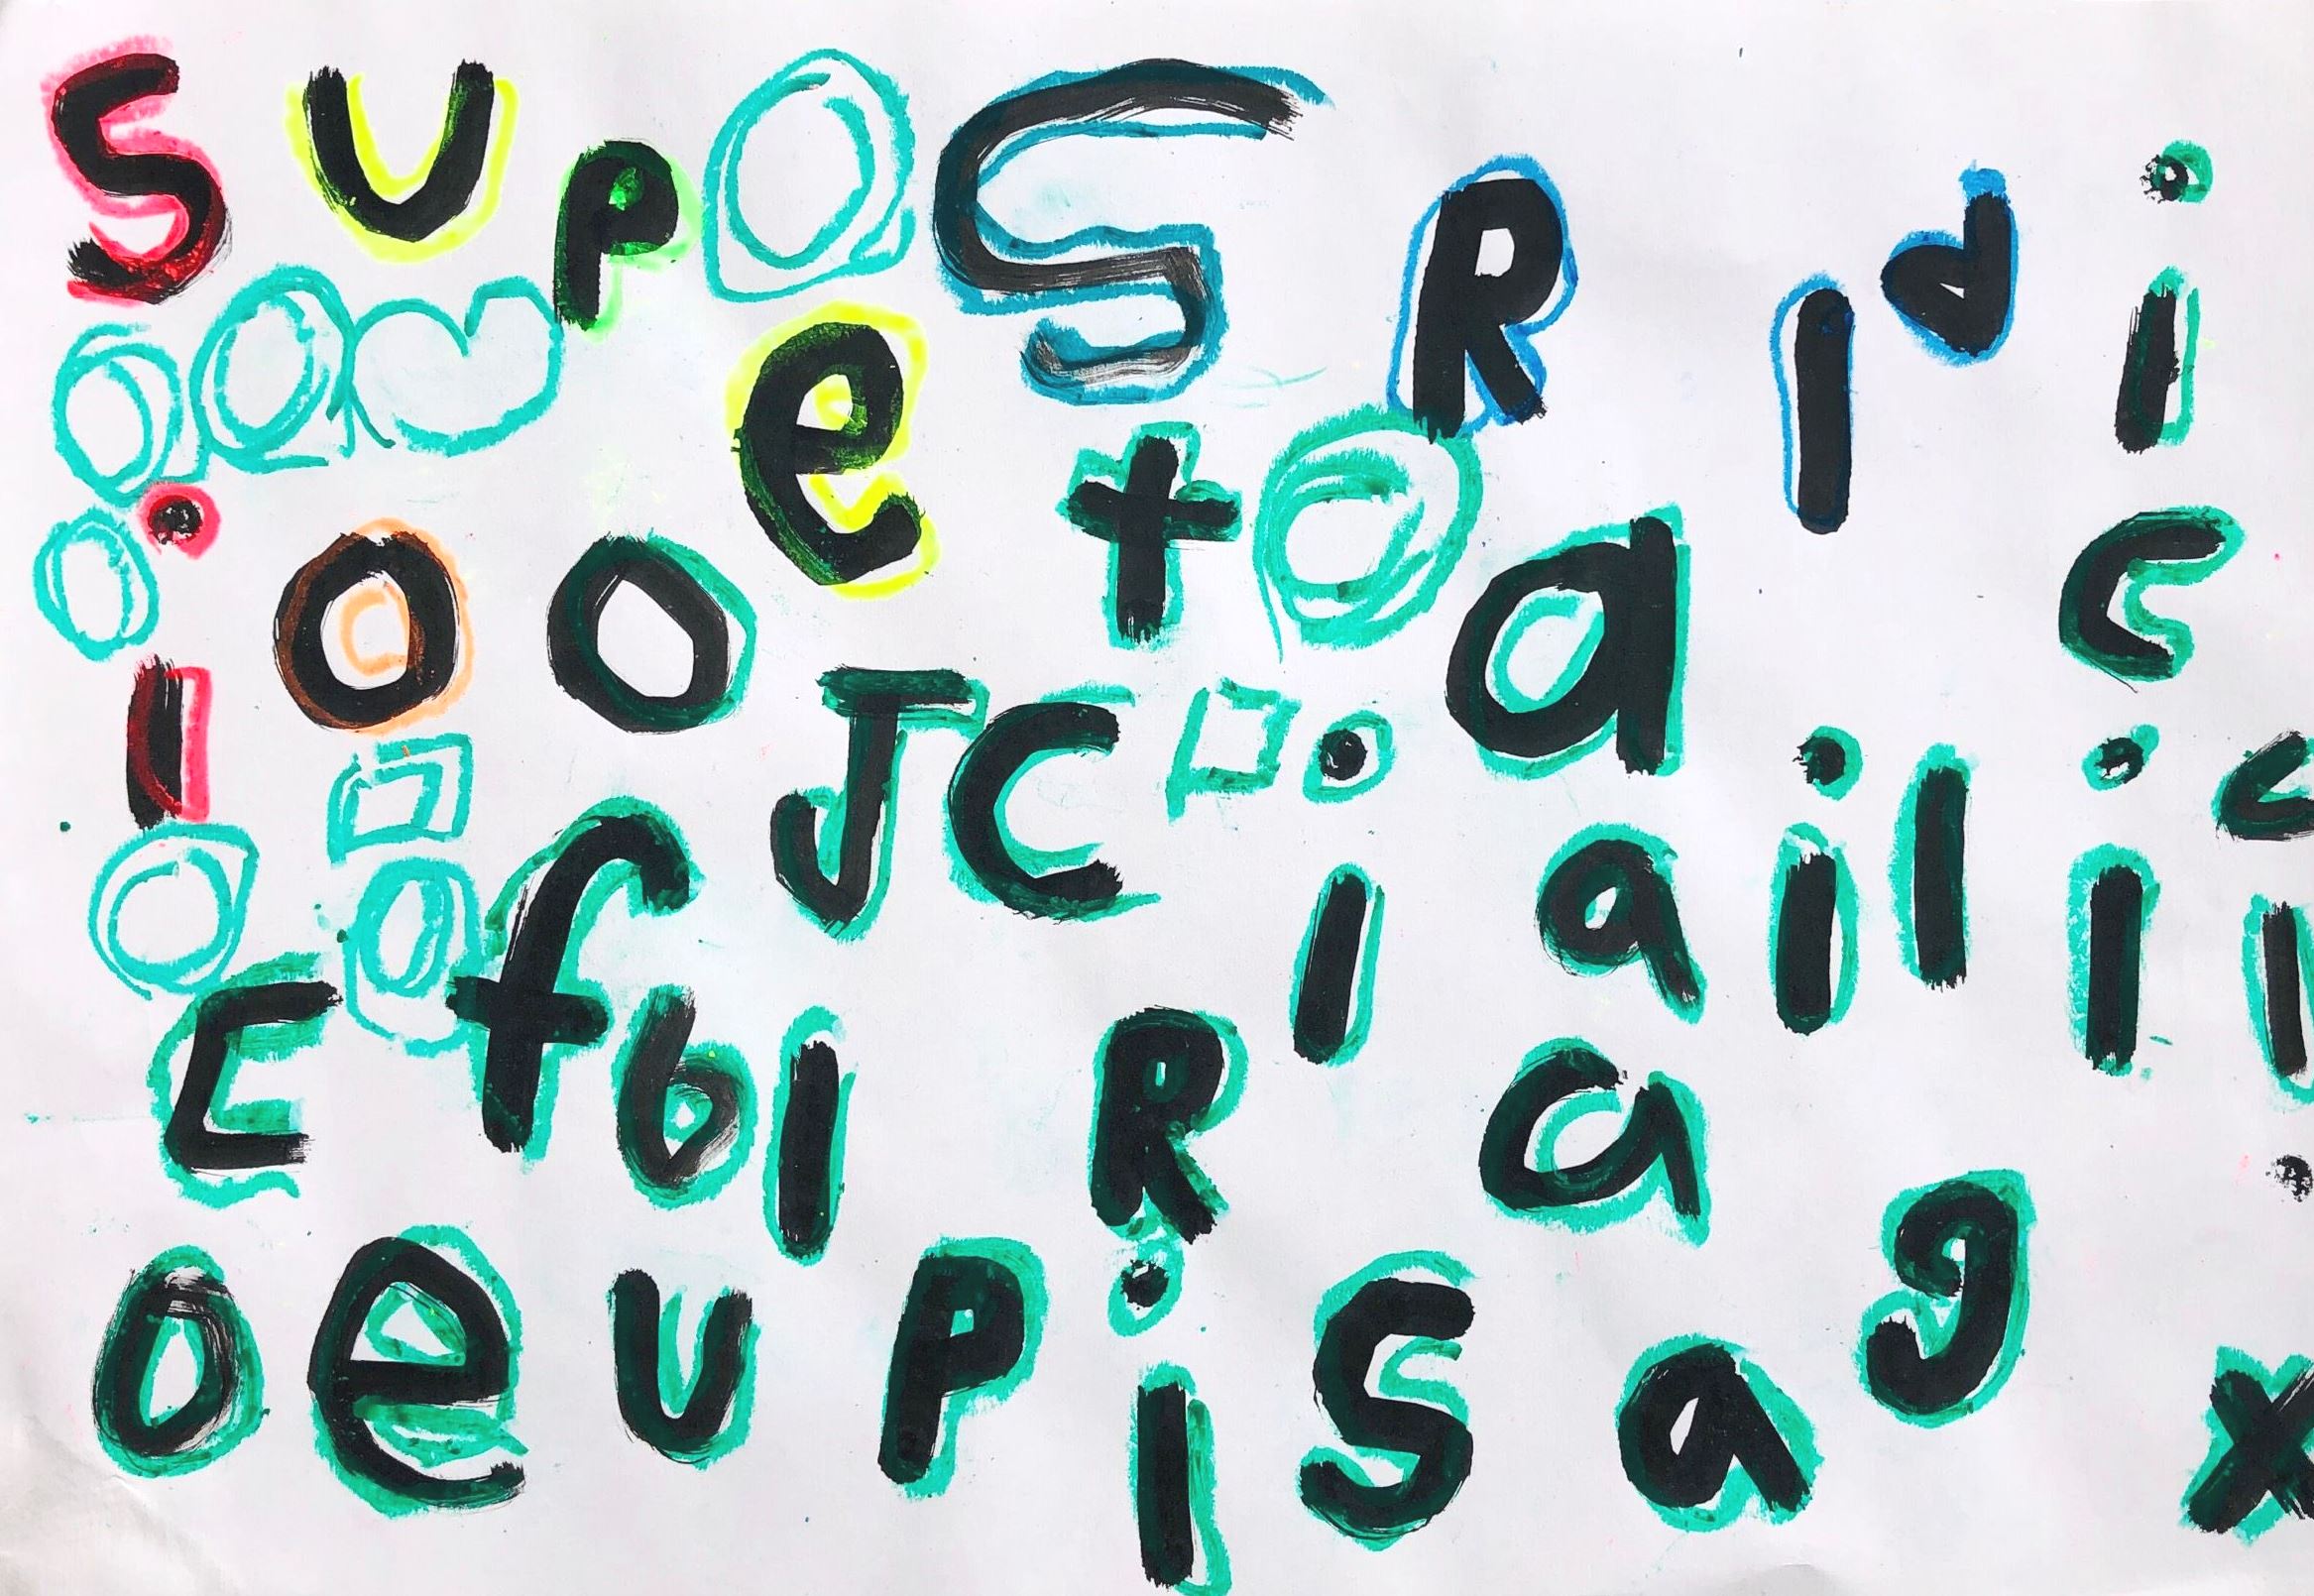 supe
S R l d i
i o o t a c
J C i a i l i c
E f b l R a i
o e u p i s a g x